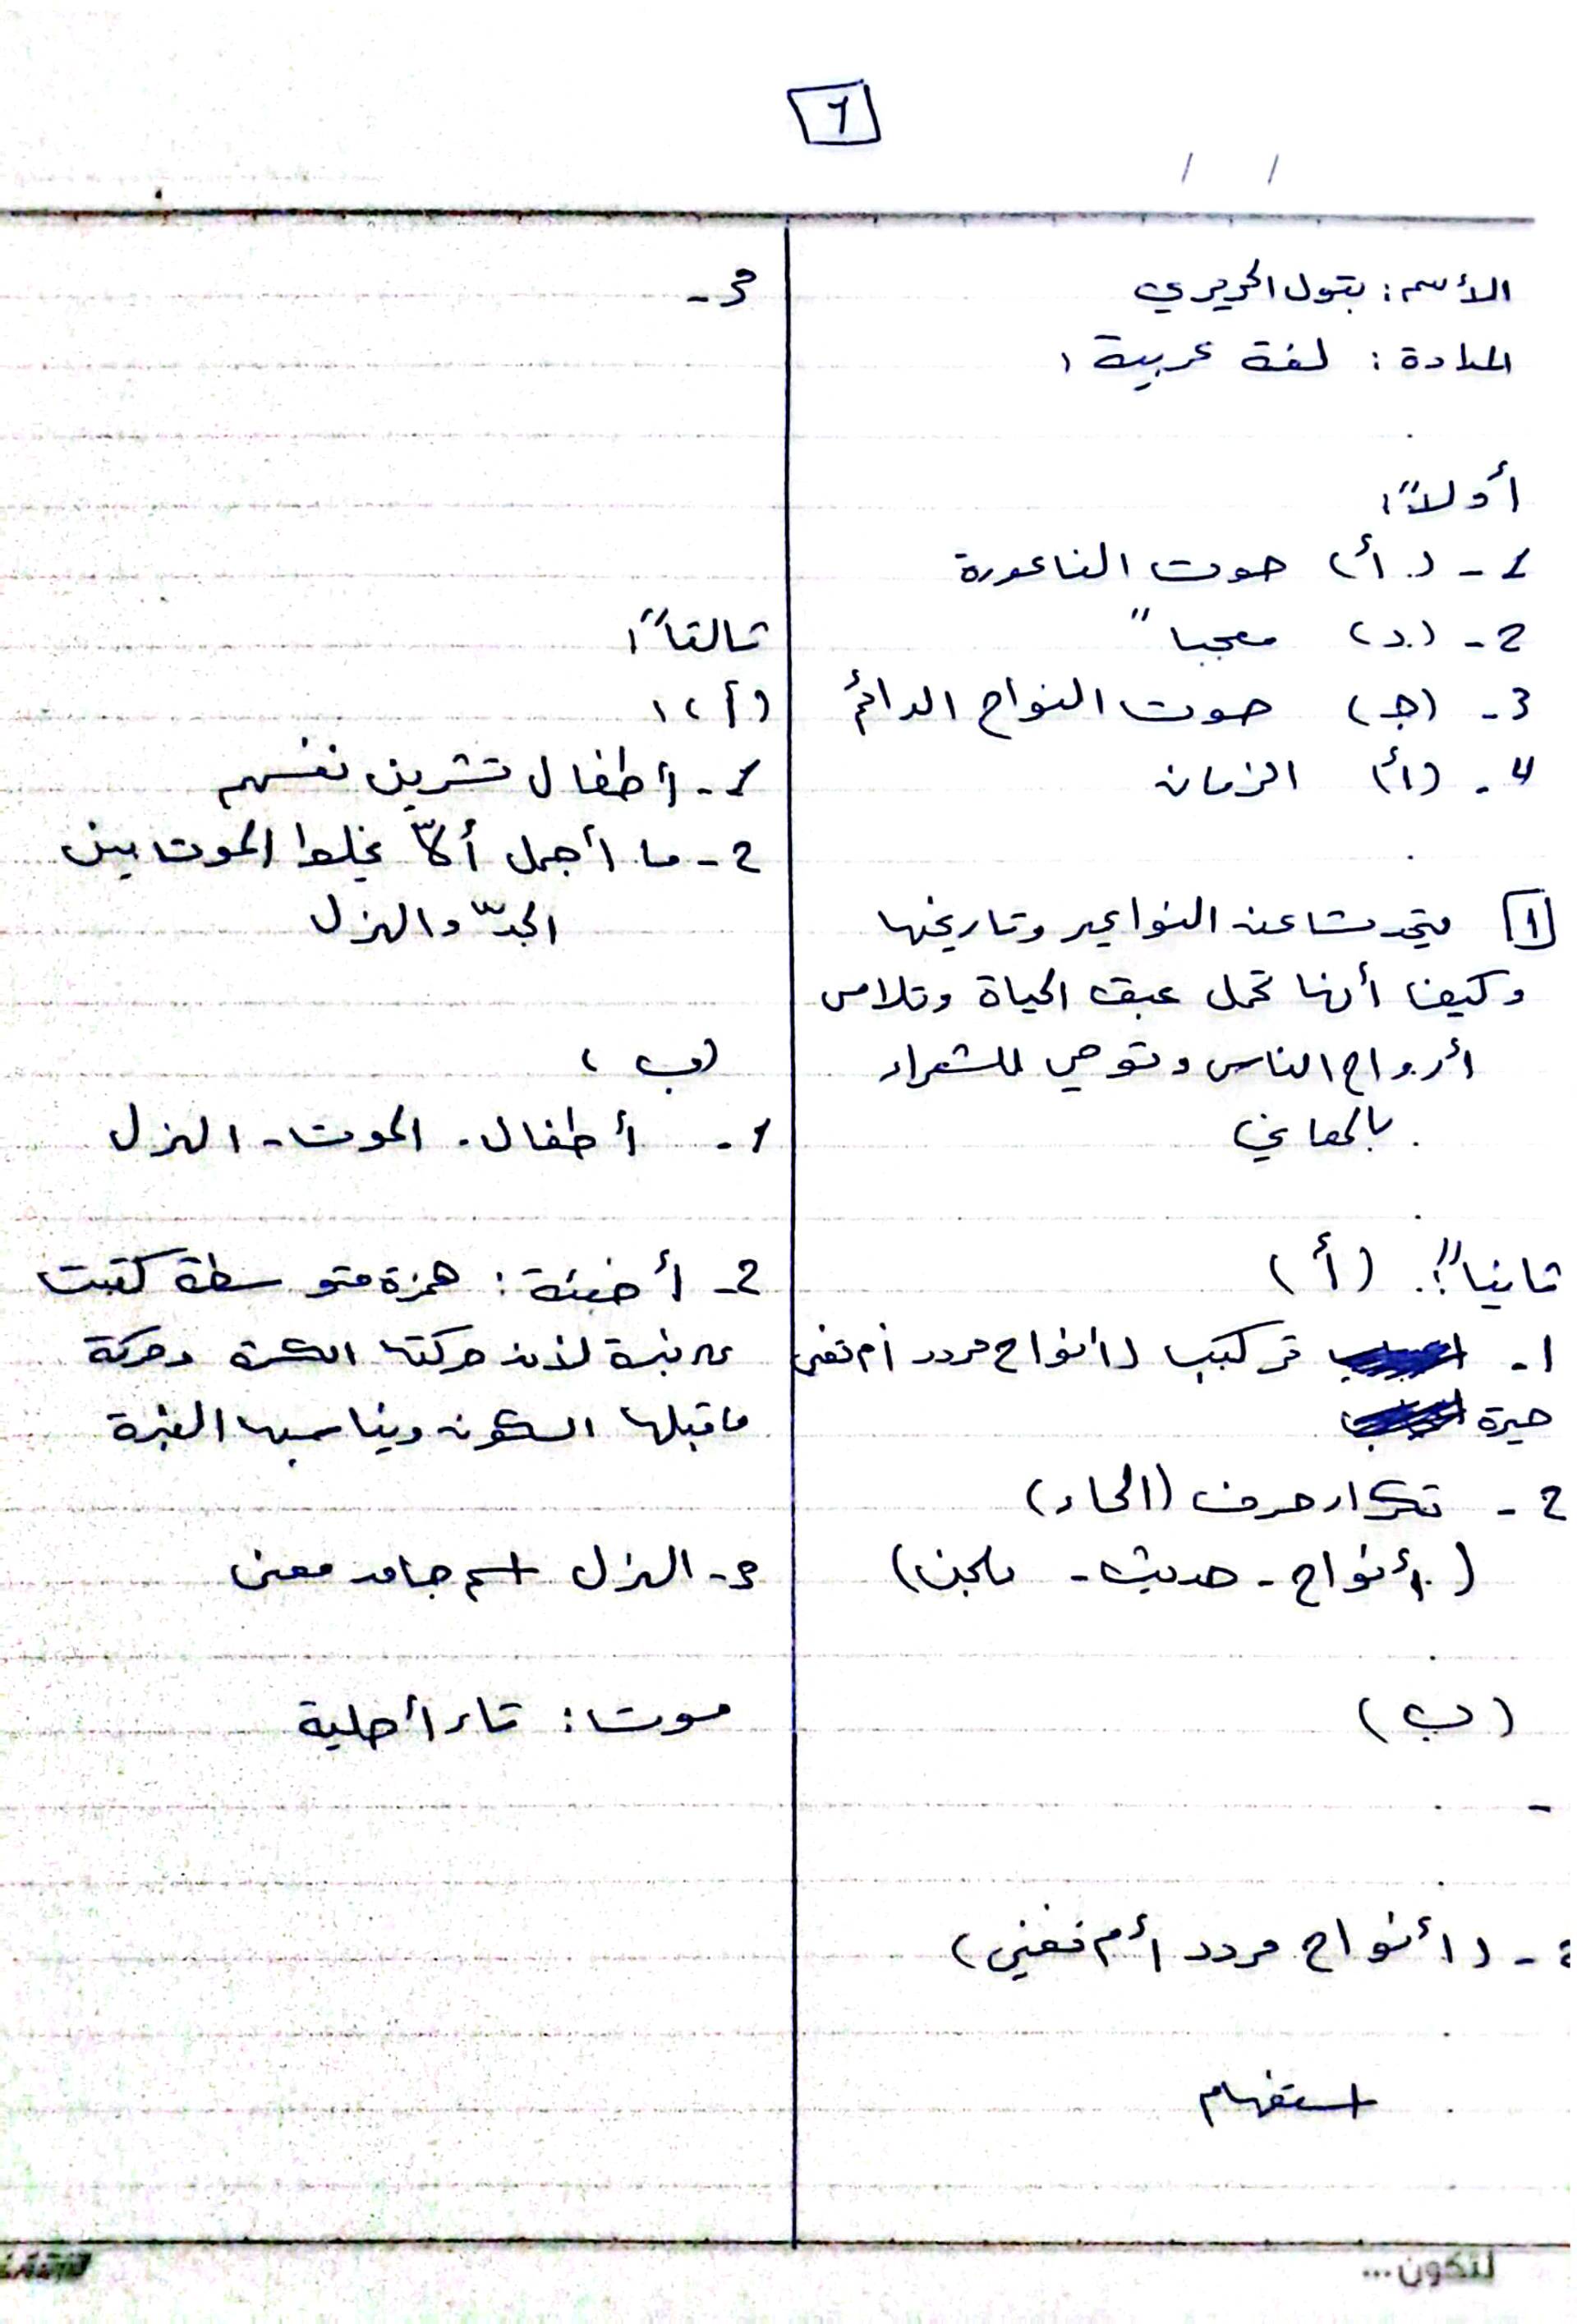 1
/ /
الأسم: بتول الحريري
المادة: لغة عربية:
أولاً:
1- (أ) صوت الناعورة
2- (د) معجباً
3- (جـ) صوت النواح الدائم
4- (أ) الزمان
1 يتحدث عن النواعير وتاريخها
وكيف أنها تحمل عبق الحياة وتلامس
أرواح الناس وتوحي للشعراء
بالمعاني
ثانياً: (أ)
1- تركيب (أنواح مردد أم تغني
حيرة
2- تكرار حرف (الحاء)
(أنواح - حديث - ملحن)
(ب)
-
2- (أنواح مردد أم تغني)
استفهام
3-
ثالثاً:
(أ):
1- أطفال تشرين نفسهم
2- ما أجمل ألّا يخلط الموت بين
الجدّ والهزل
(ب)
1- أطفال - الموت - الهزل
2- أخبئة: همزة متوسطة كتبت
على نبرة لأن حركتها الكسرة وحركة
ماقبلها السكون ويناسبها النبرة
3- الهزل اسم جامد معنى
موت: تاء أصلية
لتكون...